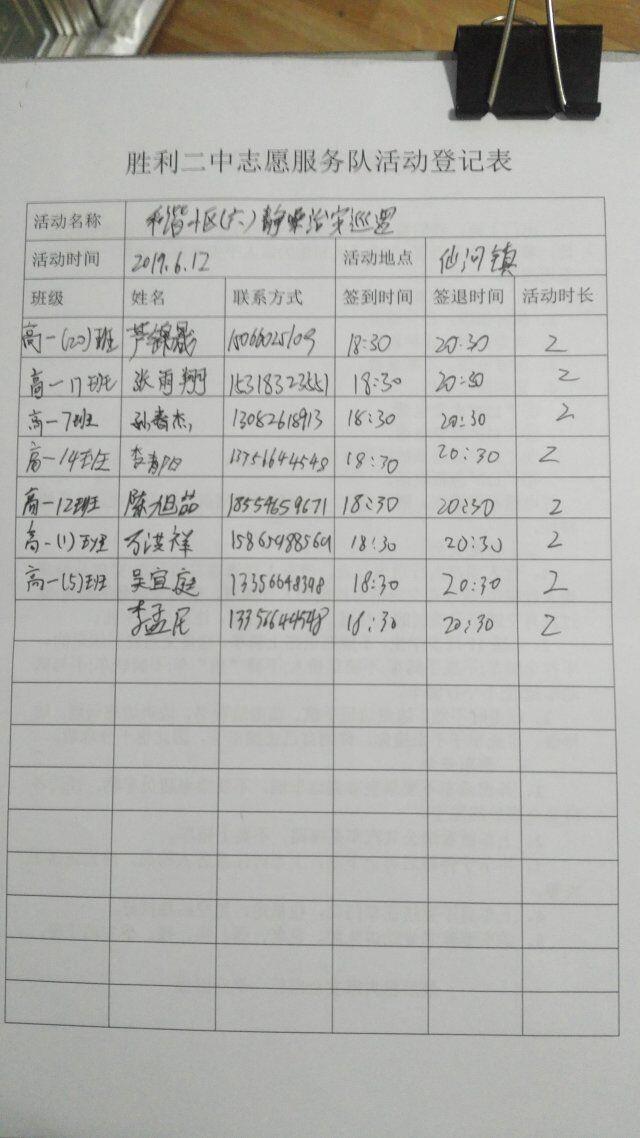 胜利二中志愿服务队活动登记表
活动名称 和谐小区(六)静噪治安巡逻
活动时间 2019.6.12 活动地点 仙河镇
班级 姓名 联系方式 签到时间 签退时间 活动时长
高一(20)班 芦锦晟 15066025109 18:30 20:30 2
高一17班 张雨翔 15318323551 18:30 20:30 2
高一7班 孙春杰 13082618913 18:30 20:30 2
高一14班 李春阳 13756644548 18:30 20:30 2
高一12班 陈旭喆 18554659671 18:30 20:30 2
高一(1)班 万洪祥 15865988560 18:30 20:30 2
高一(5)班 吴宜庭 13356648398 18:30 20:30 2
李孟民 13356644548 18:30 20:30 2